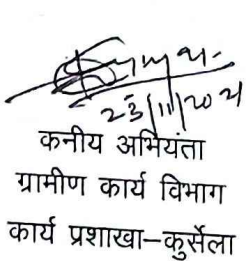 23/11/2021
कनीय अभियंता
ग्रामीण कार्य विभाग
कार्य प्रशाखा–कुर्सेला